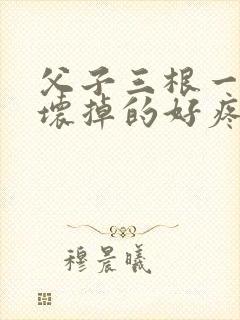 父子三根一
壞掉的好疼
穆晨曦